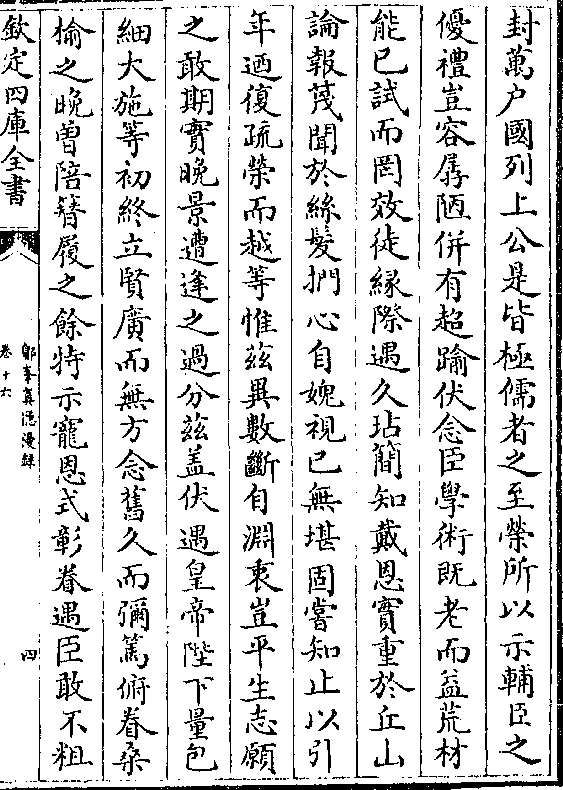 封萬户國列上公是皆極儒者之至榮所以示輔臣之
優禮豈容孱陋併有超踰伏念臣學術既老而益荒材
能已試而罔效徒縁際遇久玷簡知戴恩實重於丘山
論報蔑聞於絲髮捫心自媿視已無堪固嘗知止以引
年迺復疏榮而越等惟兹異數斷自淵衷豈平生志願
之敢期實晚景遭逢之過分兹盖伏遇皇帝陛下量包
細大施等初終立賢廣而無方念舊久而彌篤俯眷桑
榆之晚曽陪簪履之餘特示寵恩式彰眷遇臣敢不粗
欽定四庫全書
鄮峯真隠漫録
卷十六
四